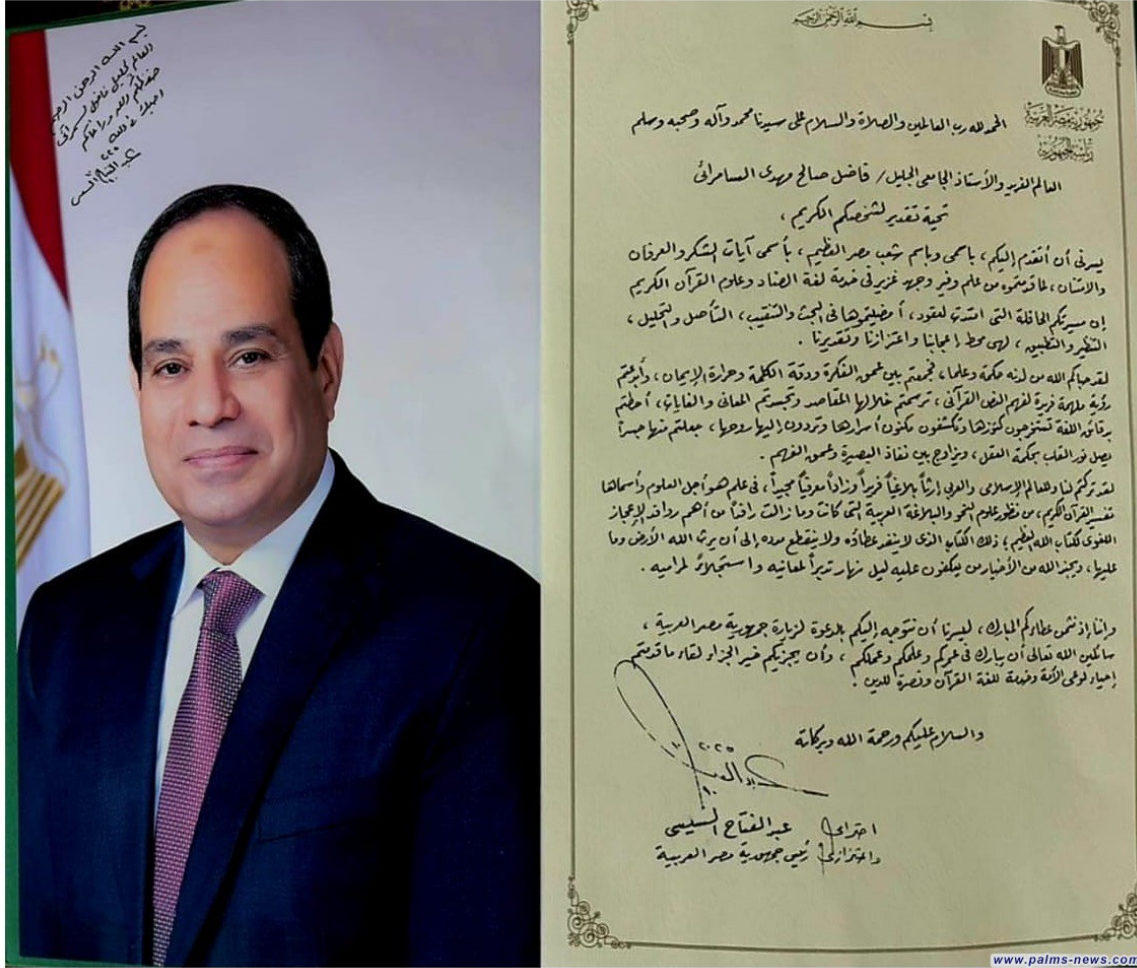 بسم الله الرحمن الرحيم
العالم الجليل فاضل السامرائي
حفظكم الله ورعاكم
٢٠٢٥
عبد الفتاح السيسي
بسم الله الرحمن الرحيم
جمهورية مصر العربية
رئاسة الجمهورية
الحمد لله رب العالمين والصلاة والسلام على سيدنا محمد وآله وصحبه وسلم
العالم الفريد والأستاذ الجامعى الجليل / فاضل صالح مهدى السامرائى
تحية تقدير لشخصكم الكريم ،
يسرنى أن أتقدم إليكم ، باسمى وباسم شعب مصر العظيم ، بأسمى آيات الشكر والعرفان
والامتنان ، لما قدمتموه من علم وفير وجهد غزير فى خدمة لغة الضاد وعلوم القرآن الكريم
إن مسيرتكم الحافلة التى امتدت لعقود ، أمضيتموها فى البحث والتنقيب ، التأصل والتحليل ،
التنظير والتطبيق ، لهى محط إعجابنا واعتزازنا وتقديرنا .
لقد حباكم الله من لدنه حكمة وعلما ، فجمعتم بين عمق الفكرة ودقة الكلمة وحرارة الإيمان ، وأبدعتم
رؤية ملهمة فريدة لفهم النص القرآنى ، ترسمتم خلالها المقاصد وتجسدتم المعانى والغايات ، أحطتم
برقائق اللغة تستخرجون كنوزها وتكشفون مكنون أسرارها وتردون إليها روحها ، جعلتم منها جسراً
يصل نور القلب بحكمة العقل ، ويزاوج بين نفاذ البصيرة وعمق الفهم .
لقد تركتم لنا وللعالم الإسلامى والعربى إرثاً بلاغياً فريداً وزاداً معرفياً مجيداً ، فى علم هو أجل العلوم وأسماها
تفسير القرآن الكريم ، من منظور علوم النحو والبلاغة العربية التى كانت وما زالت رافداً من أهم روافد الإعجاز
اللغوى لكتاب الله العظيم ؛ ذلك الكتاب الذى لا ينفد عطاؤه ولا ينقطع مدده إلى أن يرث الله الأرض وما
عليها ، ويجند الله من الأخيار من يعكفون عليه ليل نهار تدبراً لمعانيه واستجلاءً لمراميه .
وإننا إذ نثمن عطاءكم المبارك ، ليسرنا أن نتوجه إليكم بالدعوة لزيارة جمهورية مصر العربية ،
سائلين الله تعالى أن يبارك فى عمركم وعلمكم وعملكم ، وأن يجزيكم خير الجزاء لقاء ما قدمتم
إحياء لوعى الأمة وخدمة للغة القرآن ونصرة للدين .
والسلام عليكم ورحمة الله وبركاته
٢٠٢٥
احترامى عبد الفتاح السيسى
واعتزازى رئيس جمهورية مصر العربية
www.palms-news.com